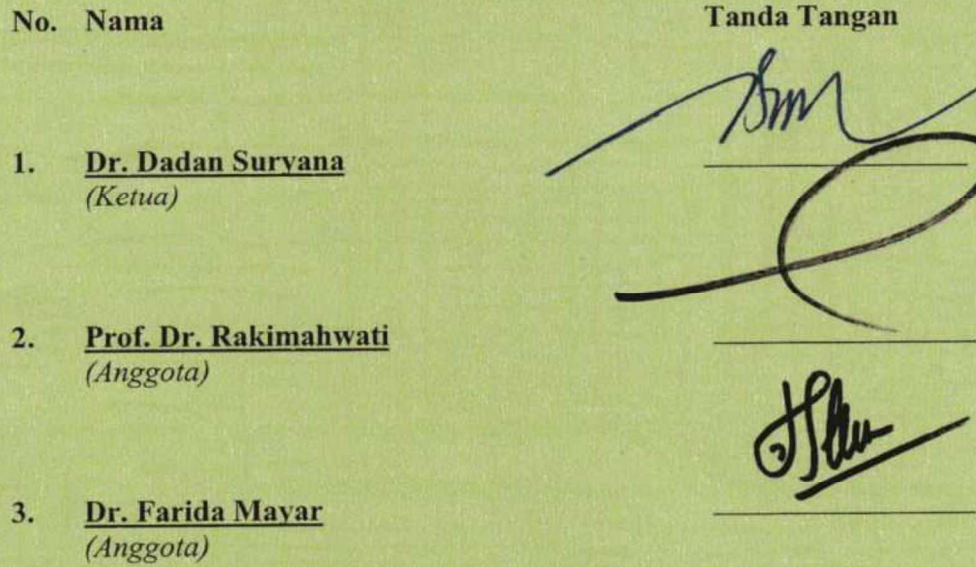 No. Nama Tanda Tangan
1. Dr. Dadan Suryana
(Ketua)
2. Prof. Dr. Rakimahwati
(Anggota)
3. Dr. Farida Mayar
(Anggota)